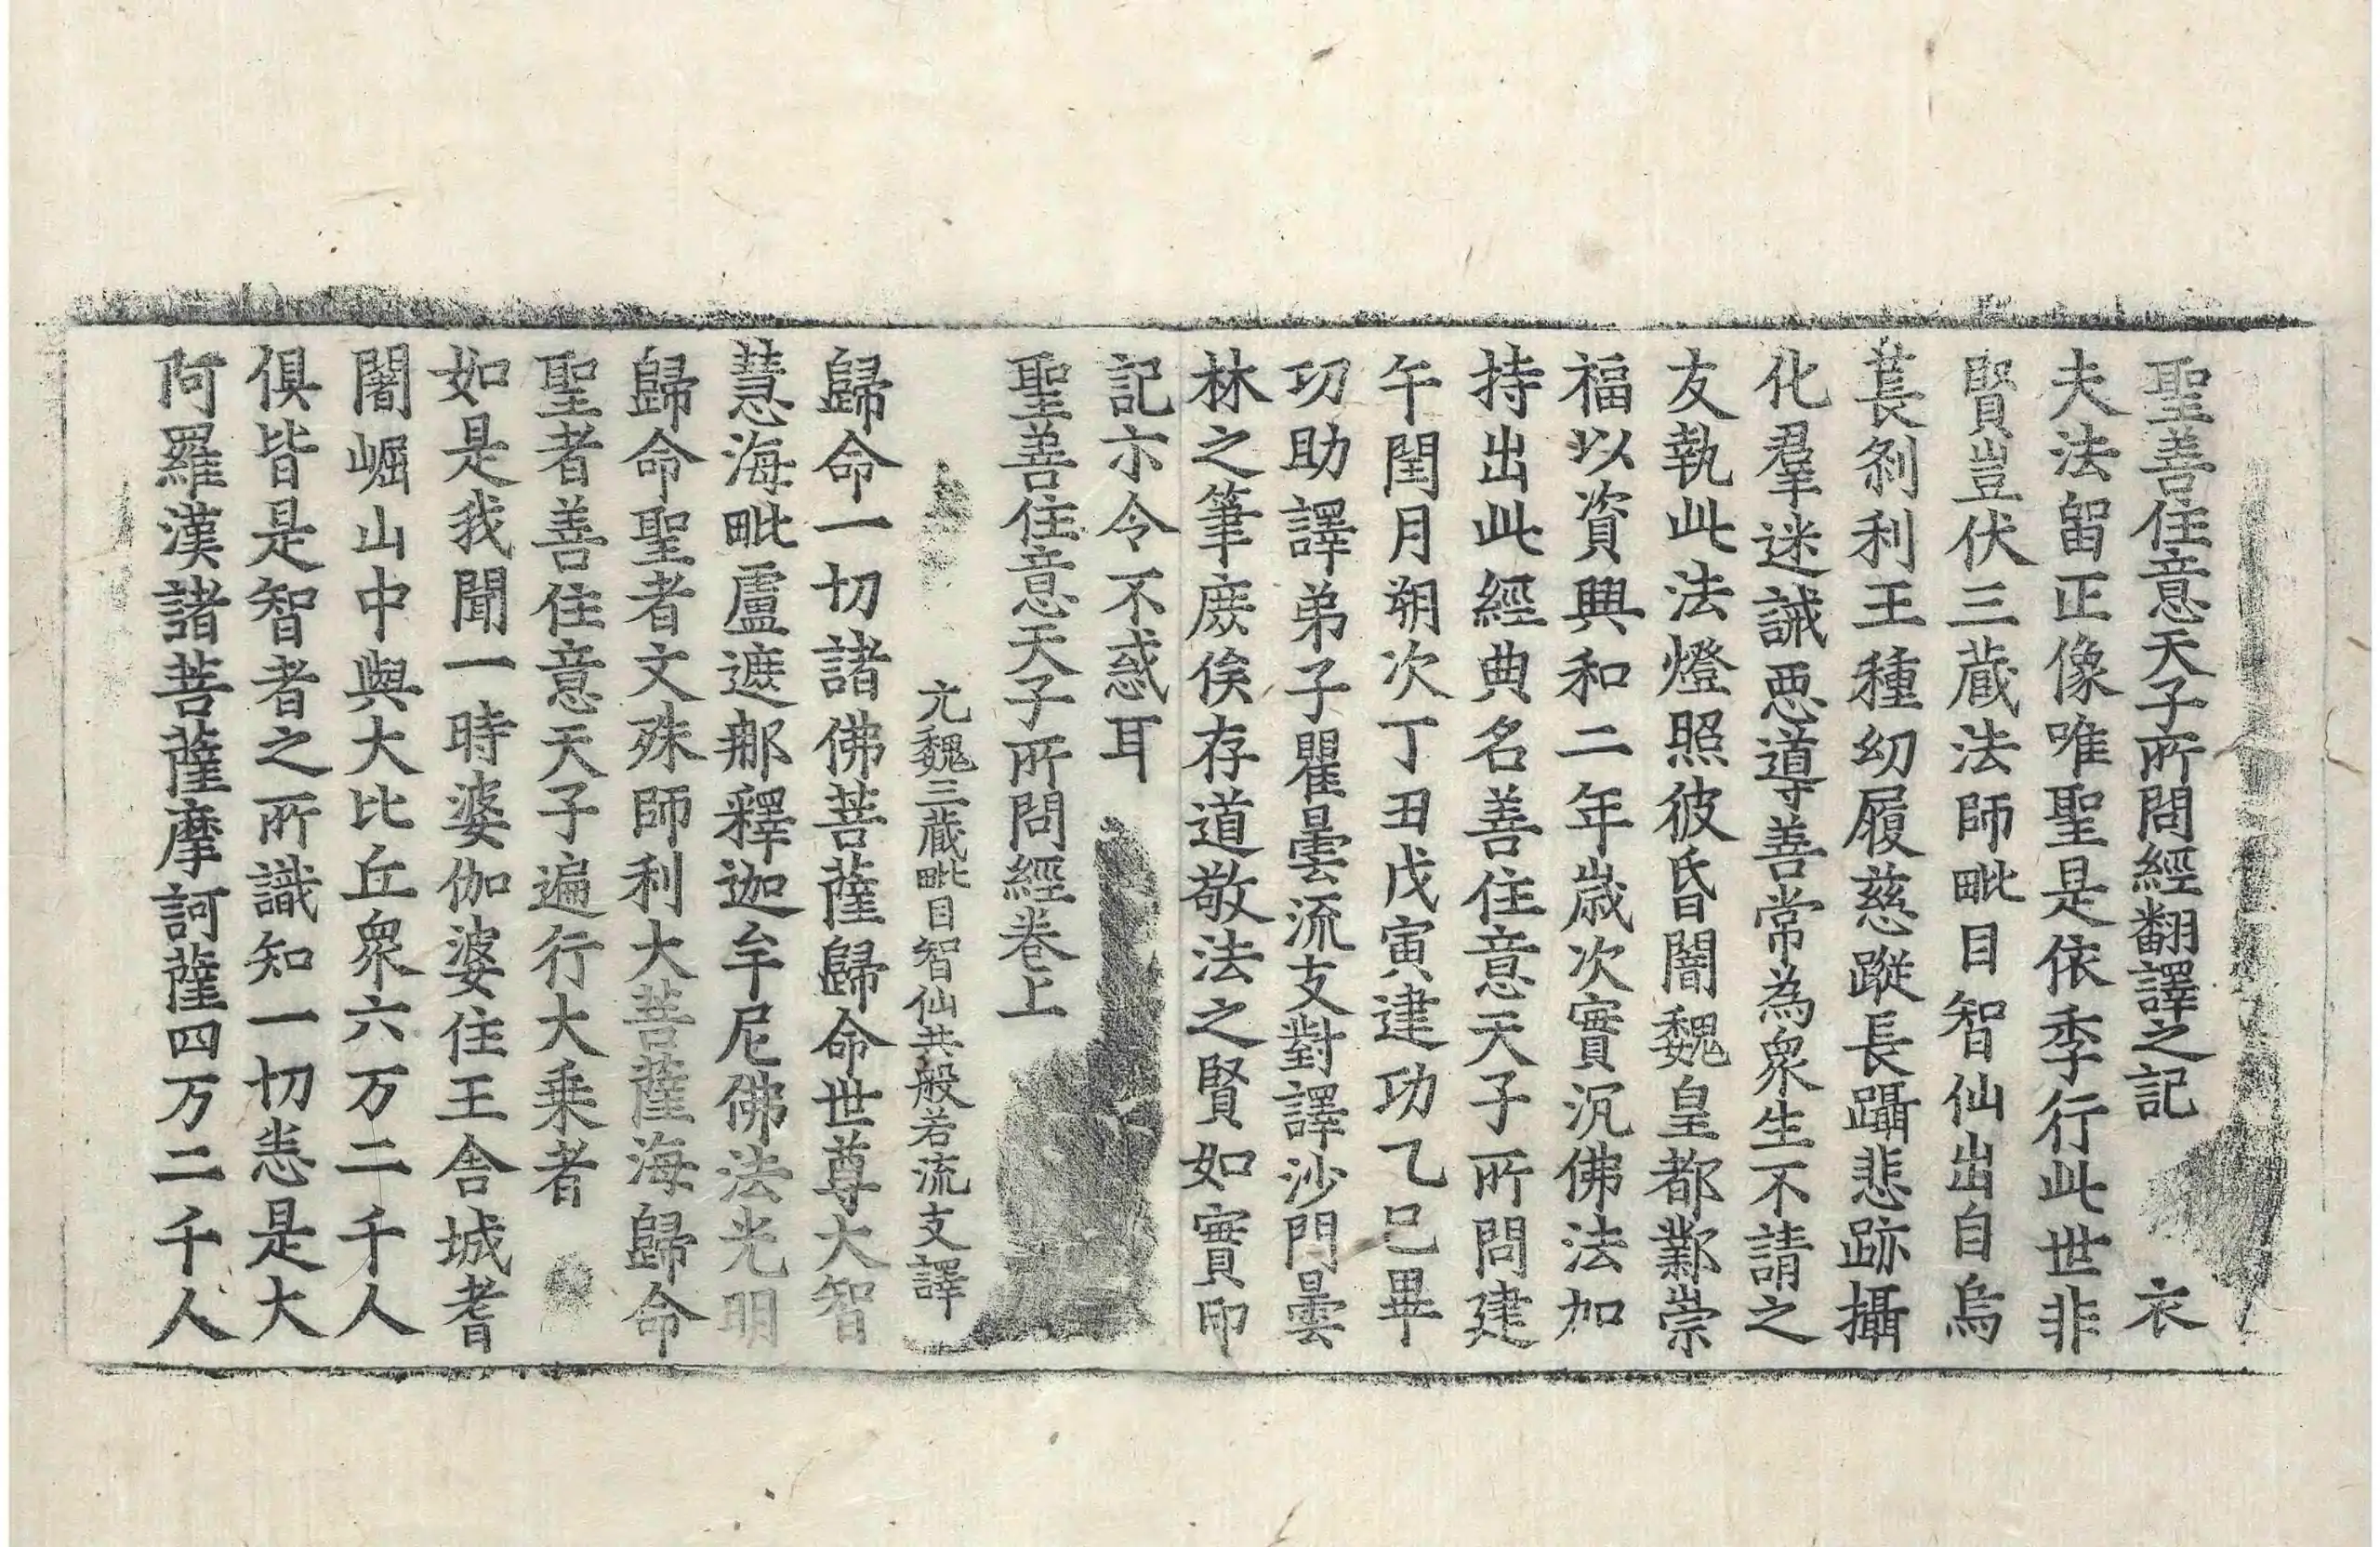 聖善住意天子所問經翻譯之記 衣
夫法留正像唯聖是依季行此世非
賢豈伏三藏法師毗目智仙出自烏
萇刹利王種幼履慈蹤長躡悲跡攝
化羣迷誡惡導善常為衆生不請之
友執此法燈照彼昏闇魏皇都鄴崇
福以資興和二年歲次實沉佛法加
持出此經典名善住意天子所問建
午閏月朔次丁丑戊寅建功乙巳畢
功助譯弟子瞿曇流支對譯沙門曇
林之筆庶俟存道敬法之賢如實印
記示令不惑耳
聖善住意天子所問經卷上
元魏三藏毗目智仙共般若流支譯
歸命一切諸佛菩薩歸命世尊大智
慧海毗盧遮那釋迦牟尼佛法光明
歸命聖者文殊師利大菩薩海歸命
聖者善住意天子遍行大乘者
如是我聞一時婆伽婆住王舍城耆
闍崛山中與大比丘衆六万二千人
俱皆是智者之所識知一切悉是大
阿羅漢諸菩薩摩訶薩四万二千人